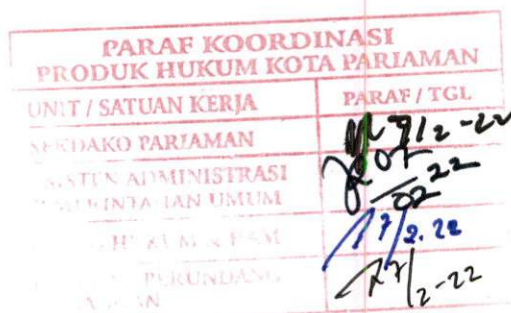 PARAF KOORDINASI
PRODUK HUKUM KOTA PARIAMAN
UNIT / SATUAN KERJA PARAF / TGL
SEKDAKO PARIAMAN 7/2-22
ASISTEN ADMINISTRASI 07
PEMERINTAHAN UMUM 02 22
HUKUM & HAM 7/2.22
PERUNDANG 7/2-22